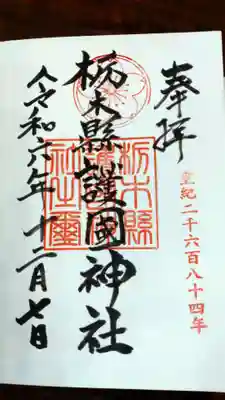 奉拝
皇紀二千六百八十四年
栃木縣護國神社
栃木縣護國神社之璽
令和六年十二月七日